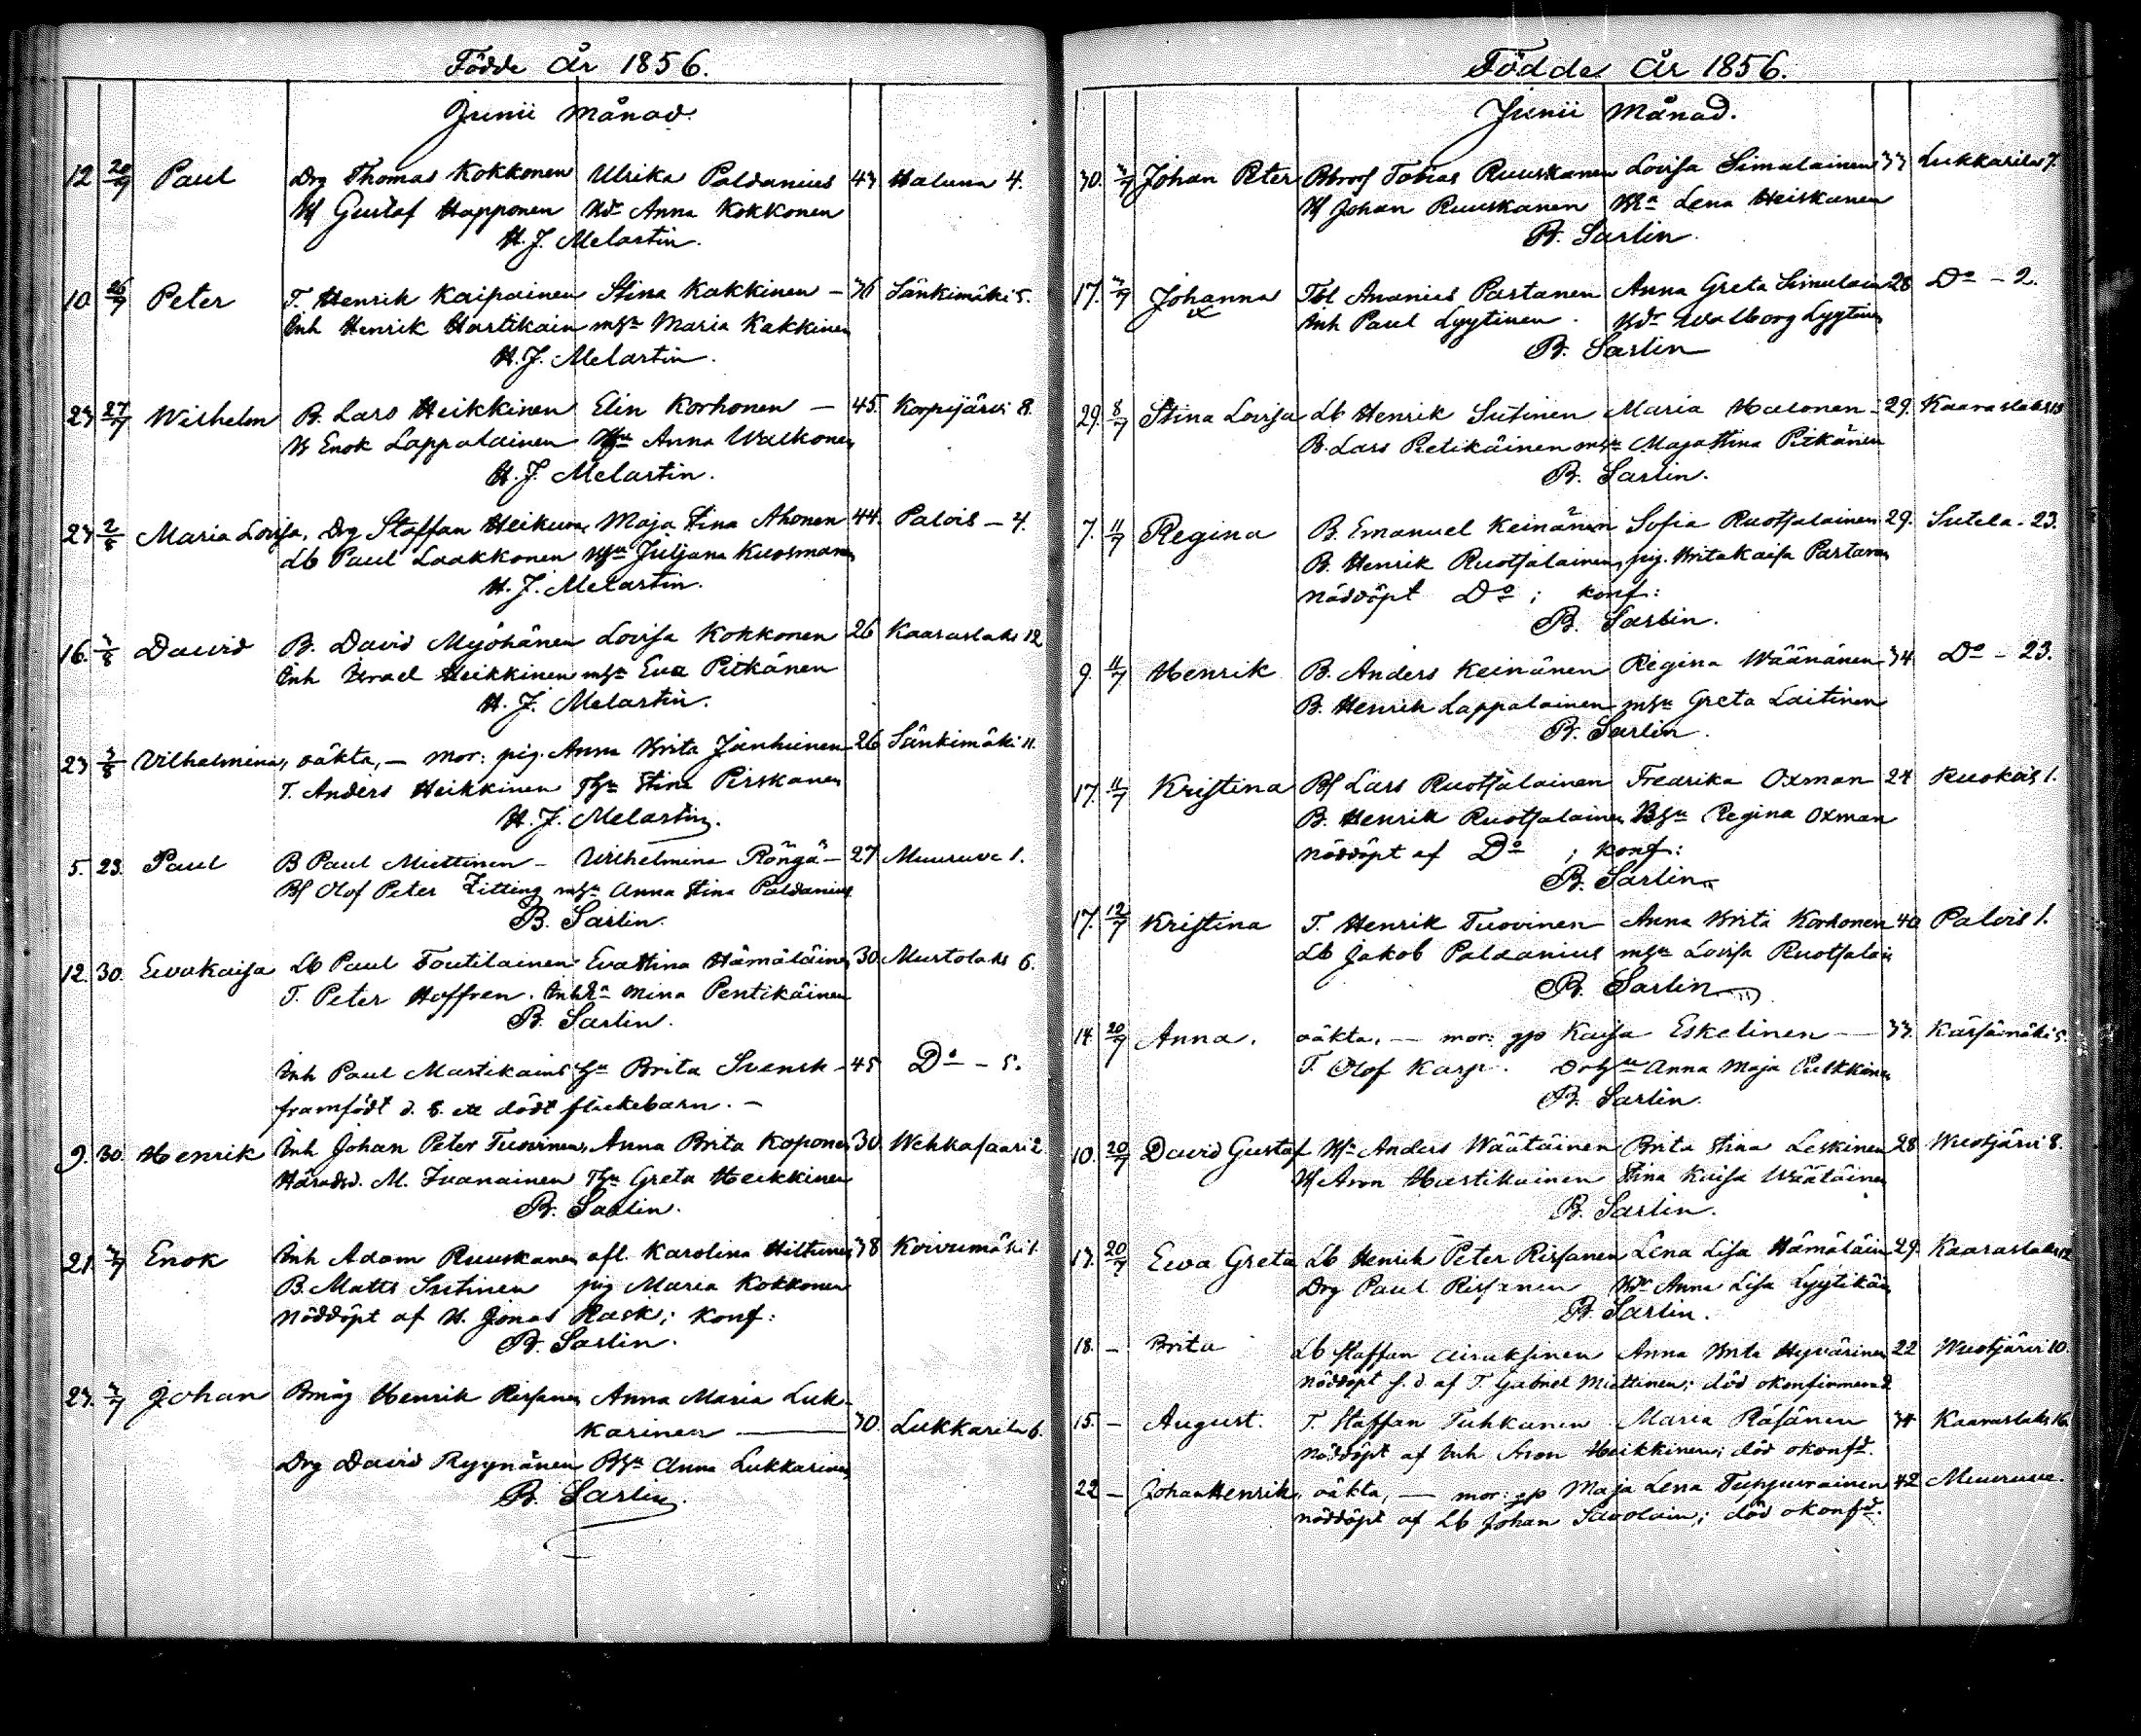 Födde år 1856.
Junii månad.
12 20/9 Paul Drg Thomas Kokkonen Ulrika Paldanius 43 Haluna 4.
Gustaf Happonen Anna Kokkonen
H. J. Melartin.
10 26/7 Peter T. Henrik Kaipainen Stina Kakkinen – 36 Sänkimäki 5.
Inh Henrik Hartikain Maria Kakkinen
H. J. Melartin.
23 27/7 Wilhelm B. Lars Heikkinen Elin Korhonen – 45. Korpijärvi 8.
Enok Lappalainen Anna Walkonen
H. J. Melartin.
23 2/8 Maria Lovisa, Drg Staffan Maja Stina Ahonen 44 Palois – 4.
Lb Paul Laakkonen Juljana Kuosmanen
H. J. Melartin.
16. 3/8 David B. David Myöhänen Lovisa Kokkonen 26 Kaaraslaks 12
Inh Israel Heikkinen Eva Pitkänen
H. J. Melartin.
23 3/8 Vilhelmina, oäkta, – mor: pig. Anna Brita Jänhunen 26 Sänkimäki 11.
T. Anders Heikkinen Stina Pirskanen
H. J. Melartin.
5. 23. Paul B Paul Miettinen – Wilhelmina Röngä – 27 Muuruve 1.
Olof Peter Zitting Anna Stina Paldanius
B. Sarlin.
12. 30. Eva Kaisa Lb Paul Toutilainen Eva Stina Hämäläinen 30 Murtolaks 6.
T. Peter Hoffren. Mina Pentikäinen
B. Sarlin.
Inh Paul Martikains Brita Svensk – 45 Do – 5.
framfödt d. 8. ett dödt flickebarn. –
9. 30. Henrik Inh Johan Peter Tuovinen, Anna Brita Koponen 30. Wehkasaari 2
Häradsd. M. Juanainen Greta Heikkinen
B. Sarlin.
21. 3/7 Enok Inh Adam Ruuskanen afl. Karolina Hiltunen 38 Koivumäki 1.
B. Matts Sutinen pig Maria Kokkonen
Nöddöpt af H. Jonas Rask; konf:
B. Sarlin.
23. 3/7 Johan Bmåg Henrik Rissanen Anna Maria Luk-
karinen —— 30. Lukkarila 6.
Drg David Ryynänen Anna Lukkarinen
B. Sarlin.
Födde år 1856.
Junii månad.
30. 3/7 Johan Peter Tobias Ruuskanen Lovisa Simulainen 33 Lukkarila 7.
Johan Ruuskanen Lena Heiskanen
B. Sarlin.
17. 3/7 Johanna Ananias Partanen Anna Greta Simulain 28 Do – 2.
Inh Paul Lyytinen. Walborg Lyytinen
B. Sarlin
29. 8/7 Stina Lovisa Lb Henrik Sutinen Maria Halonen – 29. Kaaraslaks 13
B. Lars Pietikäinen Maja Stina Pitkänen
B. Sarlin.
7. 11/7 Regina B. Emanuel Keinänen Sofia Ruotsalainen 29. Sutela – 23.
B. Henrik Ruotsalainen, pig. Brita Kaisa Partanen
nöddöpt Do; konf:
B. Sarlin.
9. 11/7 Henrik B. Anders Keinänen Regina Wäänänen 34 Do – 23.
B. Henrik Lappalainen Greta Laitinen
B. Sarlin.
17. 11/7 Kristina Lars Ruotsalainen Fredrika Oxman 24 Kuokais 1.
B. Henrik Ruotsalainen Regina Oxman
Nöddöpt af Do; konf:
B. Sarlin
17. 12/7 Kristina T. Henrik Tuovinen Anna Brita Korhonen 40 Palois 1.
Lb Jakob Paldanius Lovisa Ruotsalain
B. Sarlin
14. 20/7 Anna. oäkta, — mor: gp Kaisa Eskelinen — 33. Kärsämäki 5.
T. Olof Karp. Anna Maja Pulkkinen
B. Sarlin.
10. 20/7 David Gustaf Anders Wäätäinen Brita Stina Leskinen 28 Wuotjärvi 8.
Aron Hartikainen Stina Kaisa Wäätäinen
B. Sarlin.
13. 20/7 Eva Greta Lb Henrik Peter Rissanen Lena Lisa Hämäläin 29. Kaaraslaks 12
Drg Paul Rissanen Anna Lisa Lyytikäin
B. Sarlin.
18. – Brita Lb Staffan Airaksinen Anna Brita Hyvärinen 22 Wuotjärvi 10.
nöddöpt s. d. af T. Gabriel Miettinen; död okonfirmerad.
15. – August. T. Staffan Tuhkanen Maria Räsänen 34 Kaaraslaks 16.
nöddöpt af Inh Aron Heikkinen; död okonfd.
22 – Johan Henrik, oäkta, — mor: gp Maja Lena Tuppurainen 42 Muuruve.
nöddöpt af Lb Johan Savolain; död okonfd.